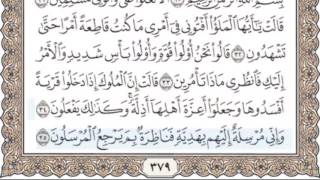 بِسْمِ ٱللَّهِ ٱلرَّحْمَٰنِ ٱلرَّحِيمِ ٣٠ أَلَّا تَعْلُوا۟ عَلَىَّ وَأْتُونِى مُسْلِمِينَ ٣١
قَالَتْ يَٰٓأَيُّهَا ٱلْمَلَؤُا۟ أَفْتُونِى فِىٓ أَمْرِى مَا كُنتُ قَاطِعَةً أَمْرًا حَتَّىٰ
تَشْهَدُونِ ٣٢ قَالُوا۟ نَحْنُ أُو۟لُوا۟ قُوَّةٍ وَأُو۟لُوا۟ بَأْسٍ شَدِيدٍ وَٱلْأَمْرُ
إِلَيْكِ فَٱنظُرِى مَاذَا تَأْمُرِينَ ٣٣ قَالَتْ إِنَّ ٱلْمُلُوكَ إِذَا دَخَلُوا۟ قَرْيَةً
أَفْسَدُوهَا وَجَعَلُوٓا۟ أَعِزَّةَ أَهْلِهَآ أَذِلَّةً وَكَذَٰلِكَ يَفْعَلُونَ ٣٤
وَإِنِّى مُرْسِلَةٌ إِلَيْهِم بِهَدِيَّةٍ فَنَاظِرَةٌۢ بِمَ يَرْجِعُ ٱلْمُرْسَلُونَ ٣٥
٣٧٩